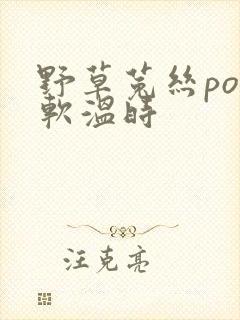 野草菟絲po
軟溫時
汪克亮